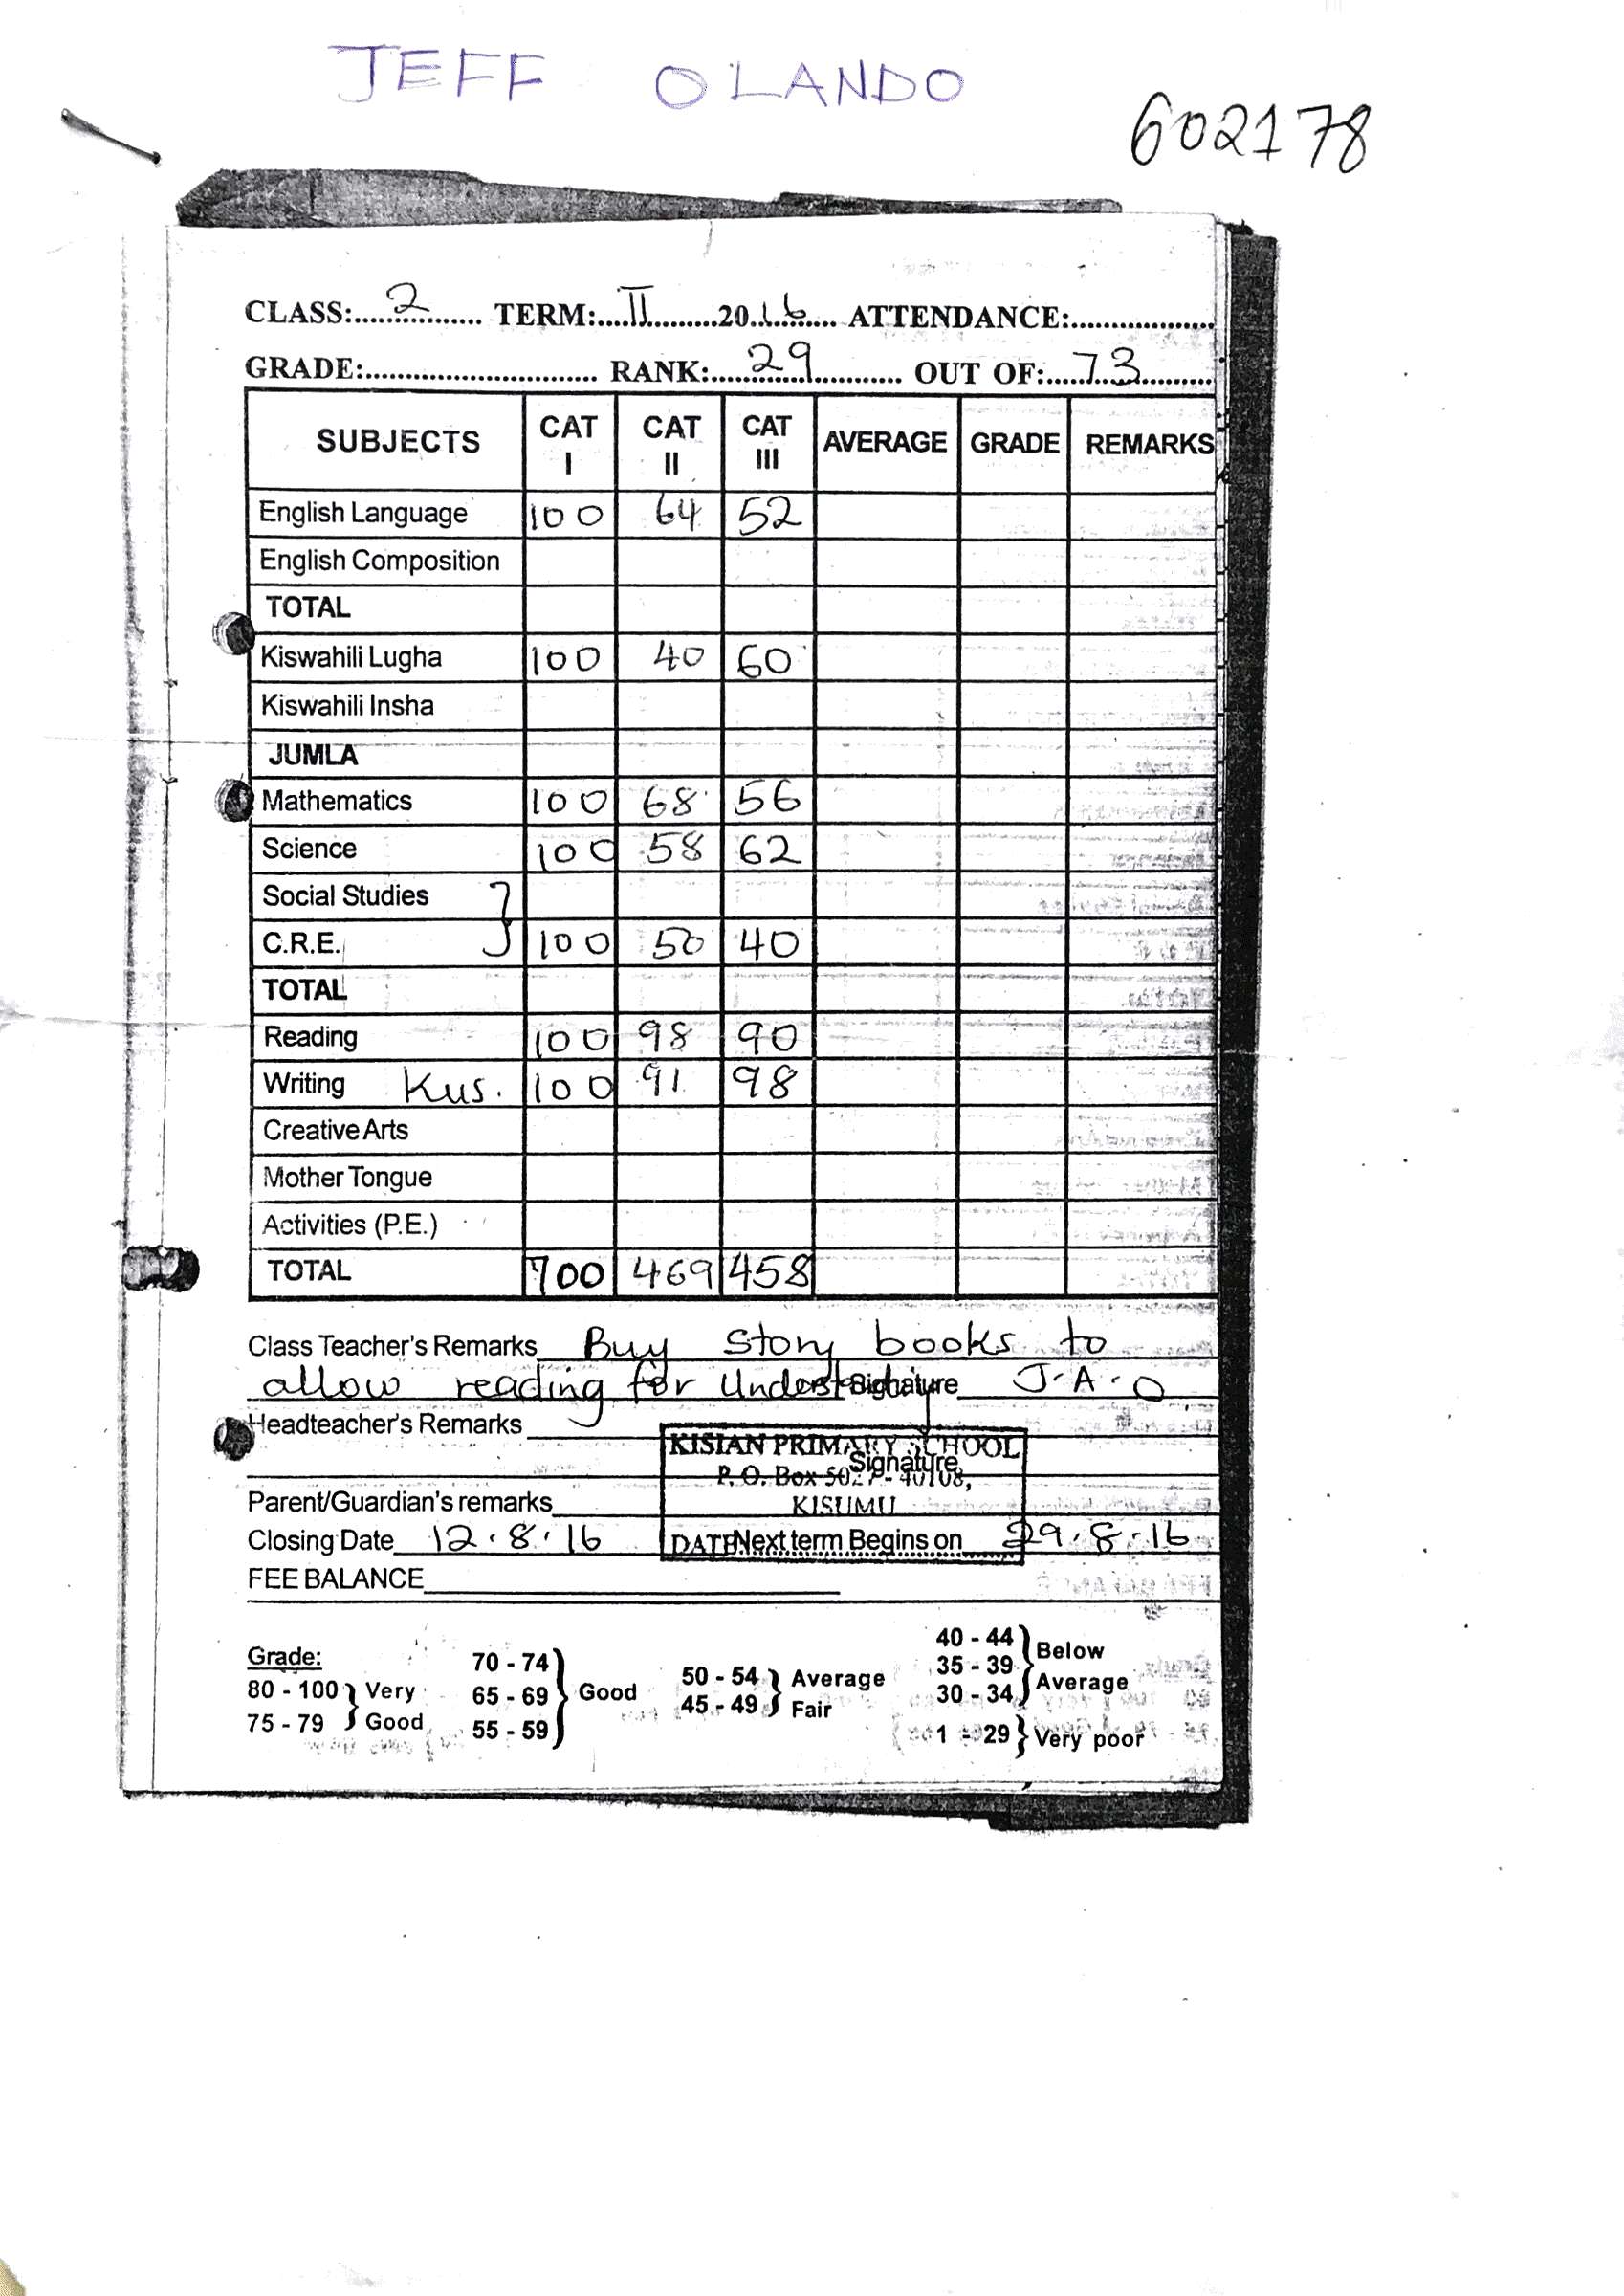 JEFF OLANDO
602178
CLASS: 2 TERM: II 2016 ATTENDANCE:
GRADE: RANK: 29 OUT OF: 73
SUBJECTS CAT I CAT II CAT III AVERAGE GRADE REMARKS
English Language 100 64 52
English Composition
TOTAL
Kiswahili Lugha 100 40 60
Kiswahili Insha
JUMLA
Mathematics 100 68 56
Science 100 58 62
Social Studies
C.R.E. 100 50 40
TOTAL
Reading 100 98 90
Writing Kus. 100 91 98
Creative Arts
Mother Tongue
Activities (P.E.)
TOTAL 700 469 458
Class Teacher's Remarks Buy Story books to
allow reading for Signature J.A.O
Headteacher's Remarks
KISIAN PRIMARY SCHOOL
Signature
P. O. Box 5027 - 40108,
KISUMU
Parent/Guardian's remarks
Closing Date 12.8.16 DATE Next term Begins on 29.8.16
FEE BALANCE
Grade:
80 - 100 75 - 79 Very Good
70 - 74 65 - 69 55 - 59 Good
50 - 54 45 - 49 Average Fair
40 - 44 35 - 39 30 - 34 Below Average
1 - 29 Very poor